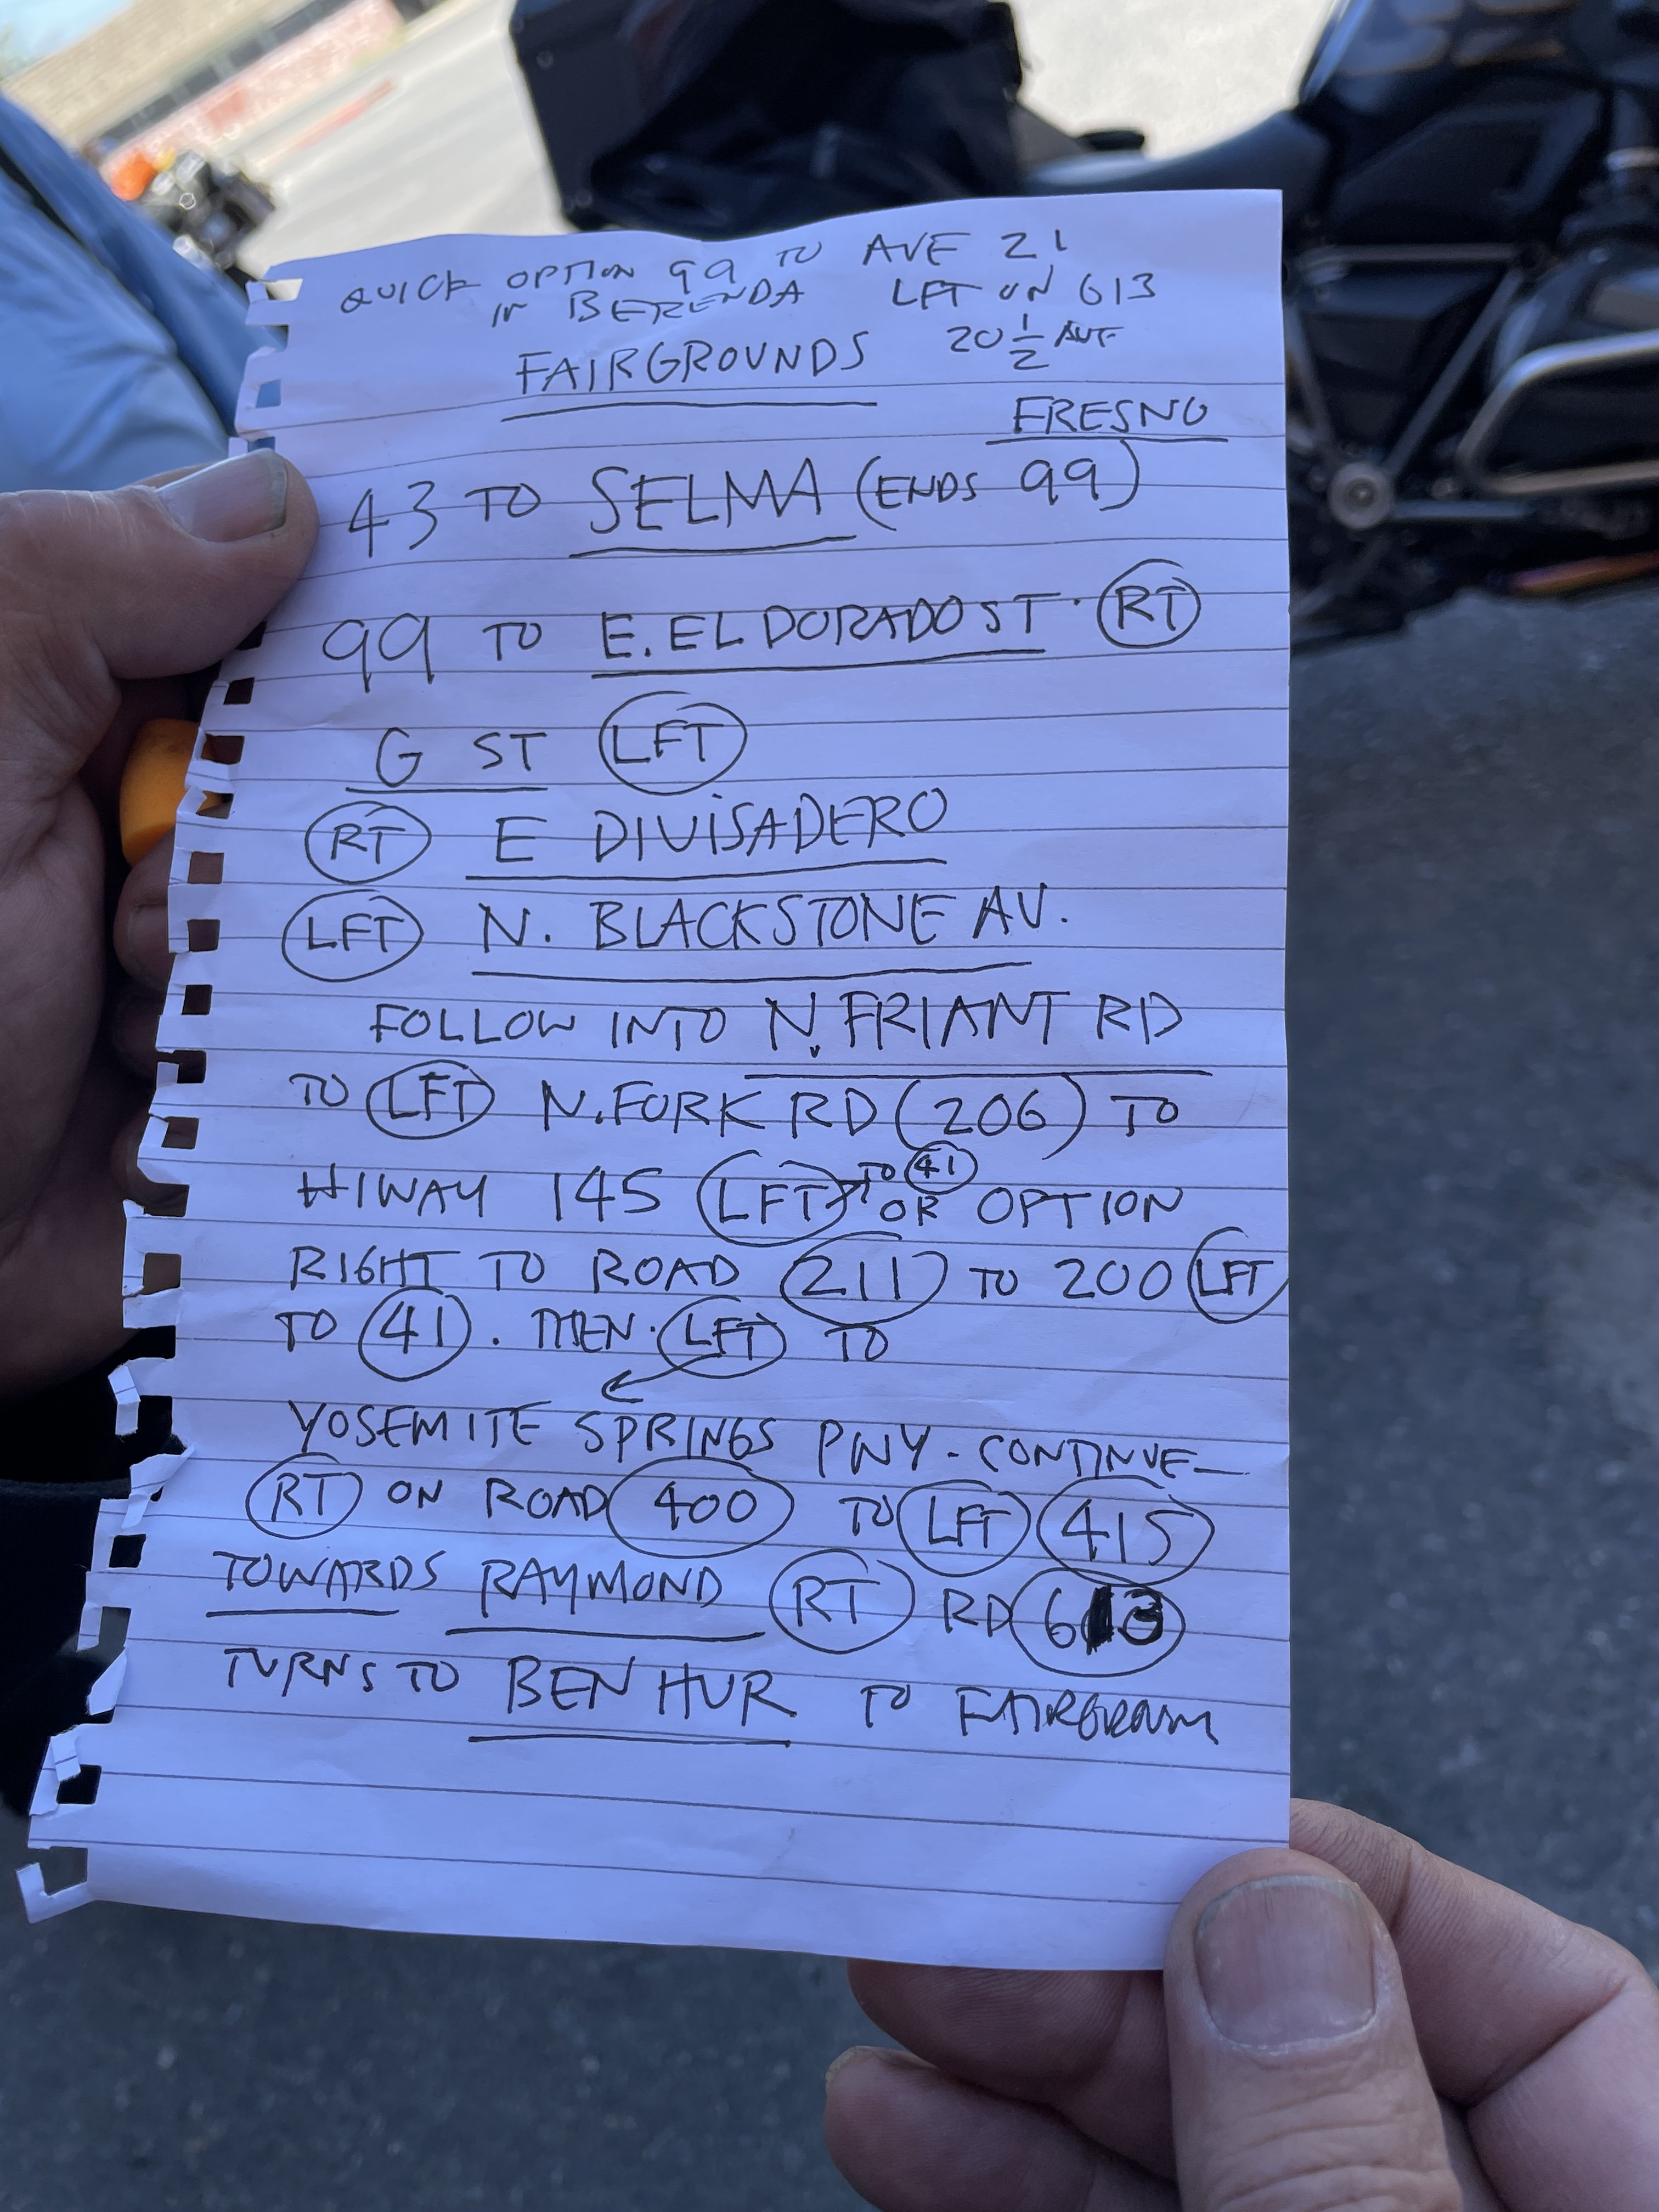 QUICK OPTION 99 TO AVE 21
IN BERENDA LFT ON 613
20 1/2 AVE
FAIRGROUNDS
FRESNO
43 TO SELMA (ENDS 99)
99 TO E. EL DORADO ST. RT
G ST LFT
RT E DIVISADERO
LFT N. BLACKSTONE AV.
FOLLOW INTO N. FRIANT RD
TO LFT N. FORK RD (206) TO
HIWAY 145 LFT → TO 41 OR OPTION
RIGHT TO ROAD 211 TO 200 LFT
TO 41. THEN LFT TO
YOSEMITE SPRINGS PWY - CONTINUE -
RT ON ROAD 400 TO LFT 415
TOWARDS RAYMOND RT RD 613
TURNS TO BEN HUR TO